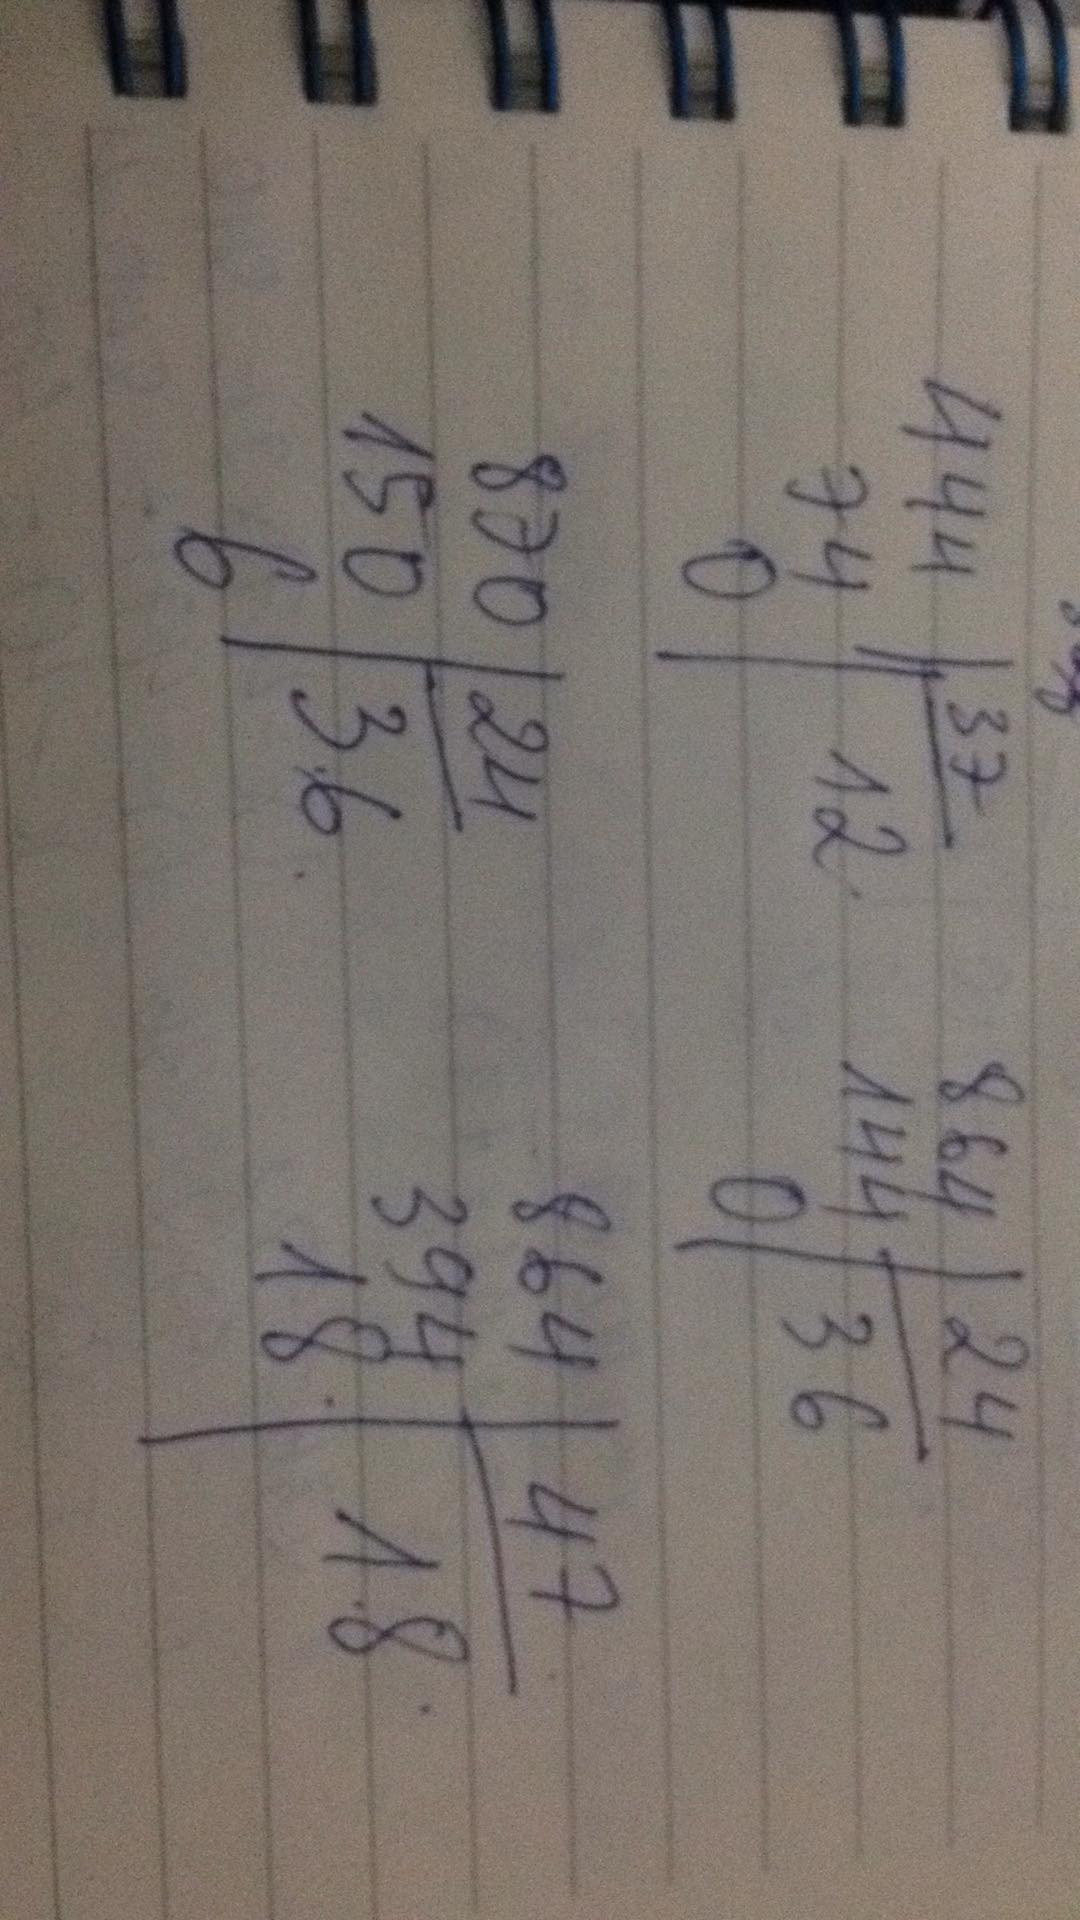 444 | 37
74 | 12
0
864 | 24
144 | 36
0
870 | 24
150 | 36
6
864 | 47
394 | 18
18